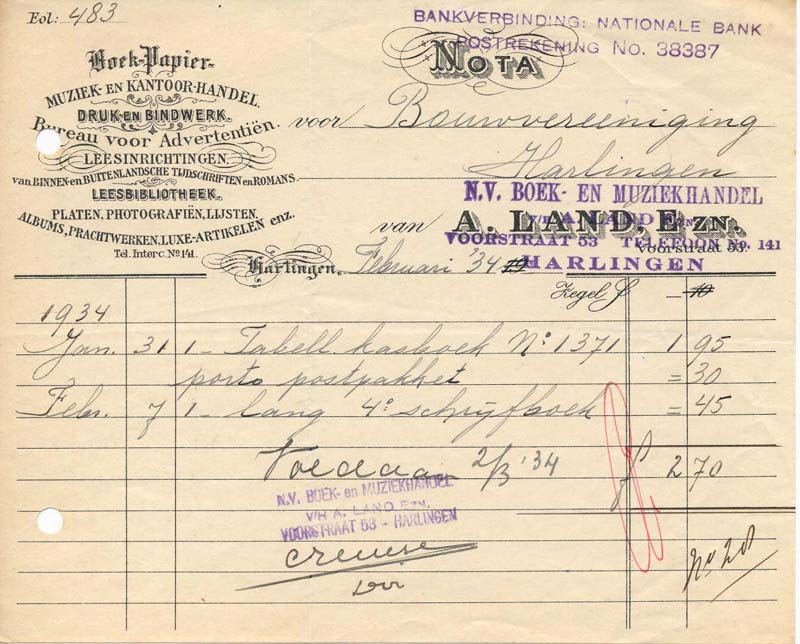 Fol: 483
BANKVERBINDING: NATIONALE BANK
POSTREKENING No. 38387
Boek-Papier-
MUZIEK- EN KANTOOR-HANDEL.
DRUK- EN BINDWERK.
Bureau voor Advertentiën.
LEESINRICHTINGEN
van BINNEN- en BUITENLANDSCHE TIJDSCHRIFTEN en ROMANS.
LEESBIBLIOTHEEK.
PLATEN, PHOTOGRAFIËN, LIJSTEN,
ALBUMS, PRACHTWERKEN, LUXE-ARTIKELEN enz.
Tel. Interc. No. 141.
NOTA
voor Bouwvereeniging
Harlingen
N.V. BOEK- EN MUZIEKHANDEL
van A. LAND, EZN.
VOORSTRAAT 53 TELEFOON No. 141
Voorstraat 53.
HARLINGEN
Harlingen, Februari '34 19
Zegel f - 10
1934
Jan. 31 1 - Tabell. kasboek No: 1371 1 95
porto postpakket = 30
Febr. 7 1 - lang 4o schrijfboek = 45
Voldaan 2/3 '34 f 2 70
N.V. BOEK- en MUZIEKHANDEL
V/H A. LAND EZN.
VOORSTRAAT 53 - HARLINGEN